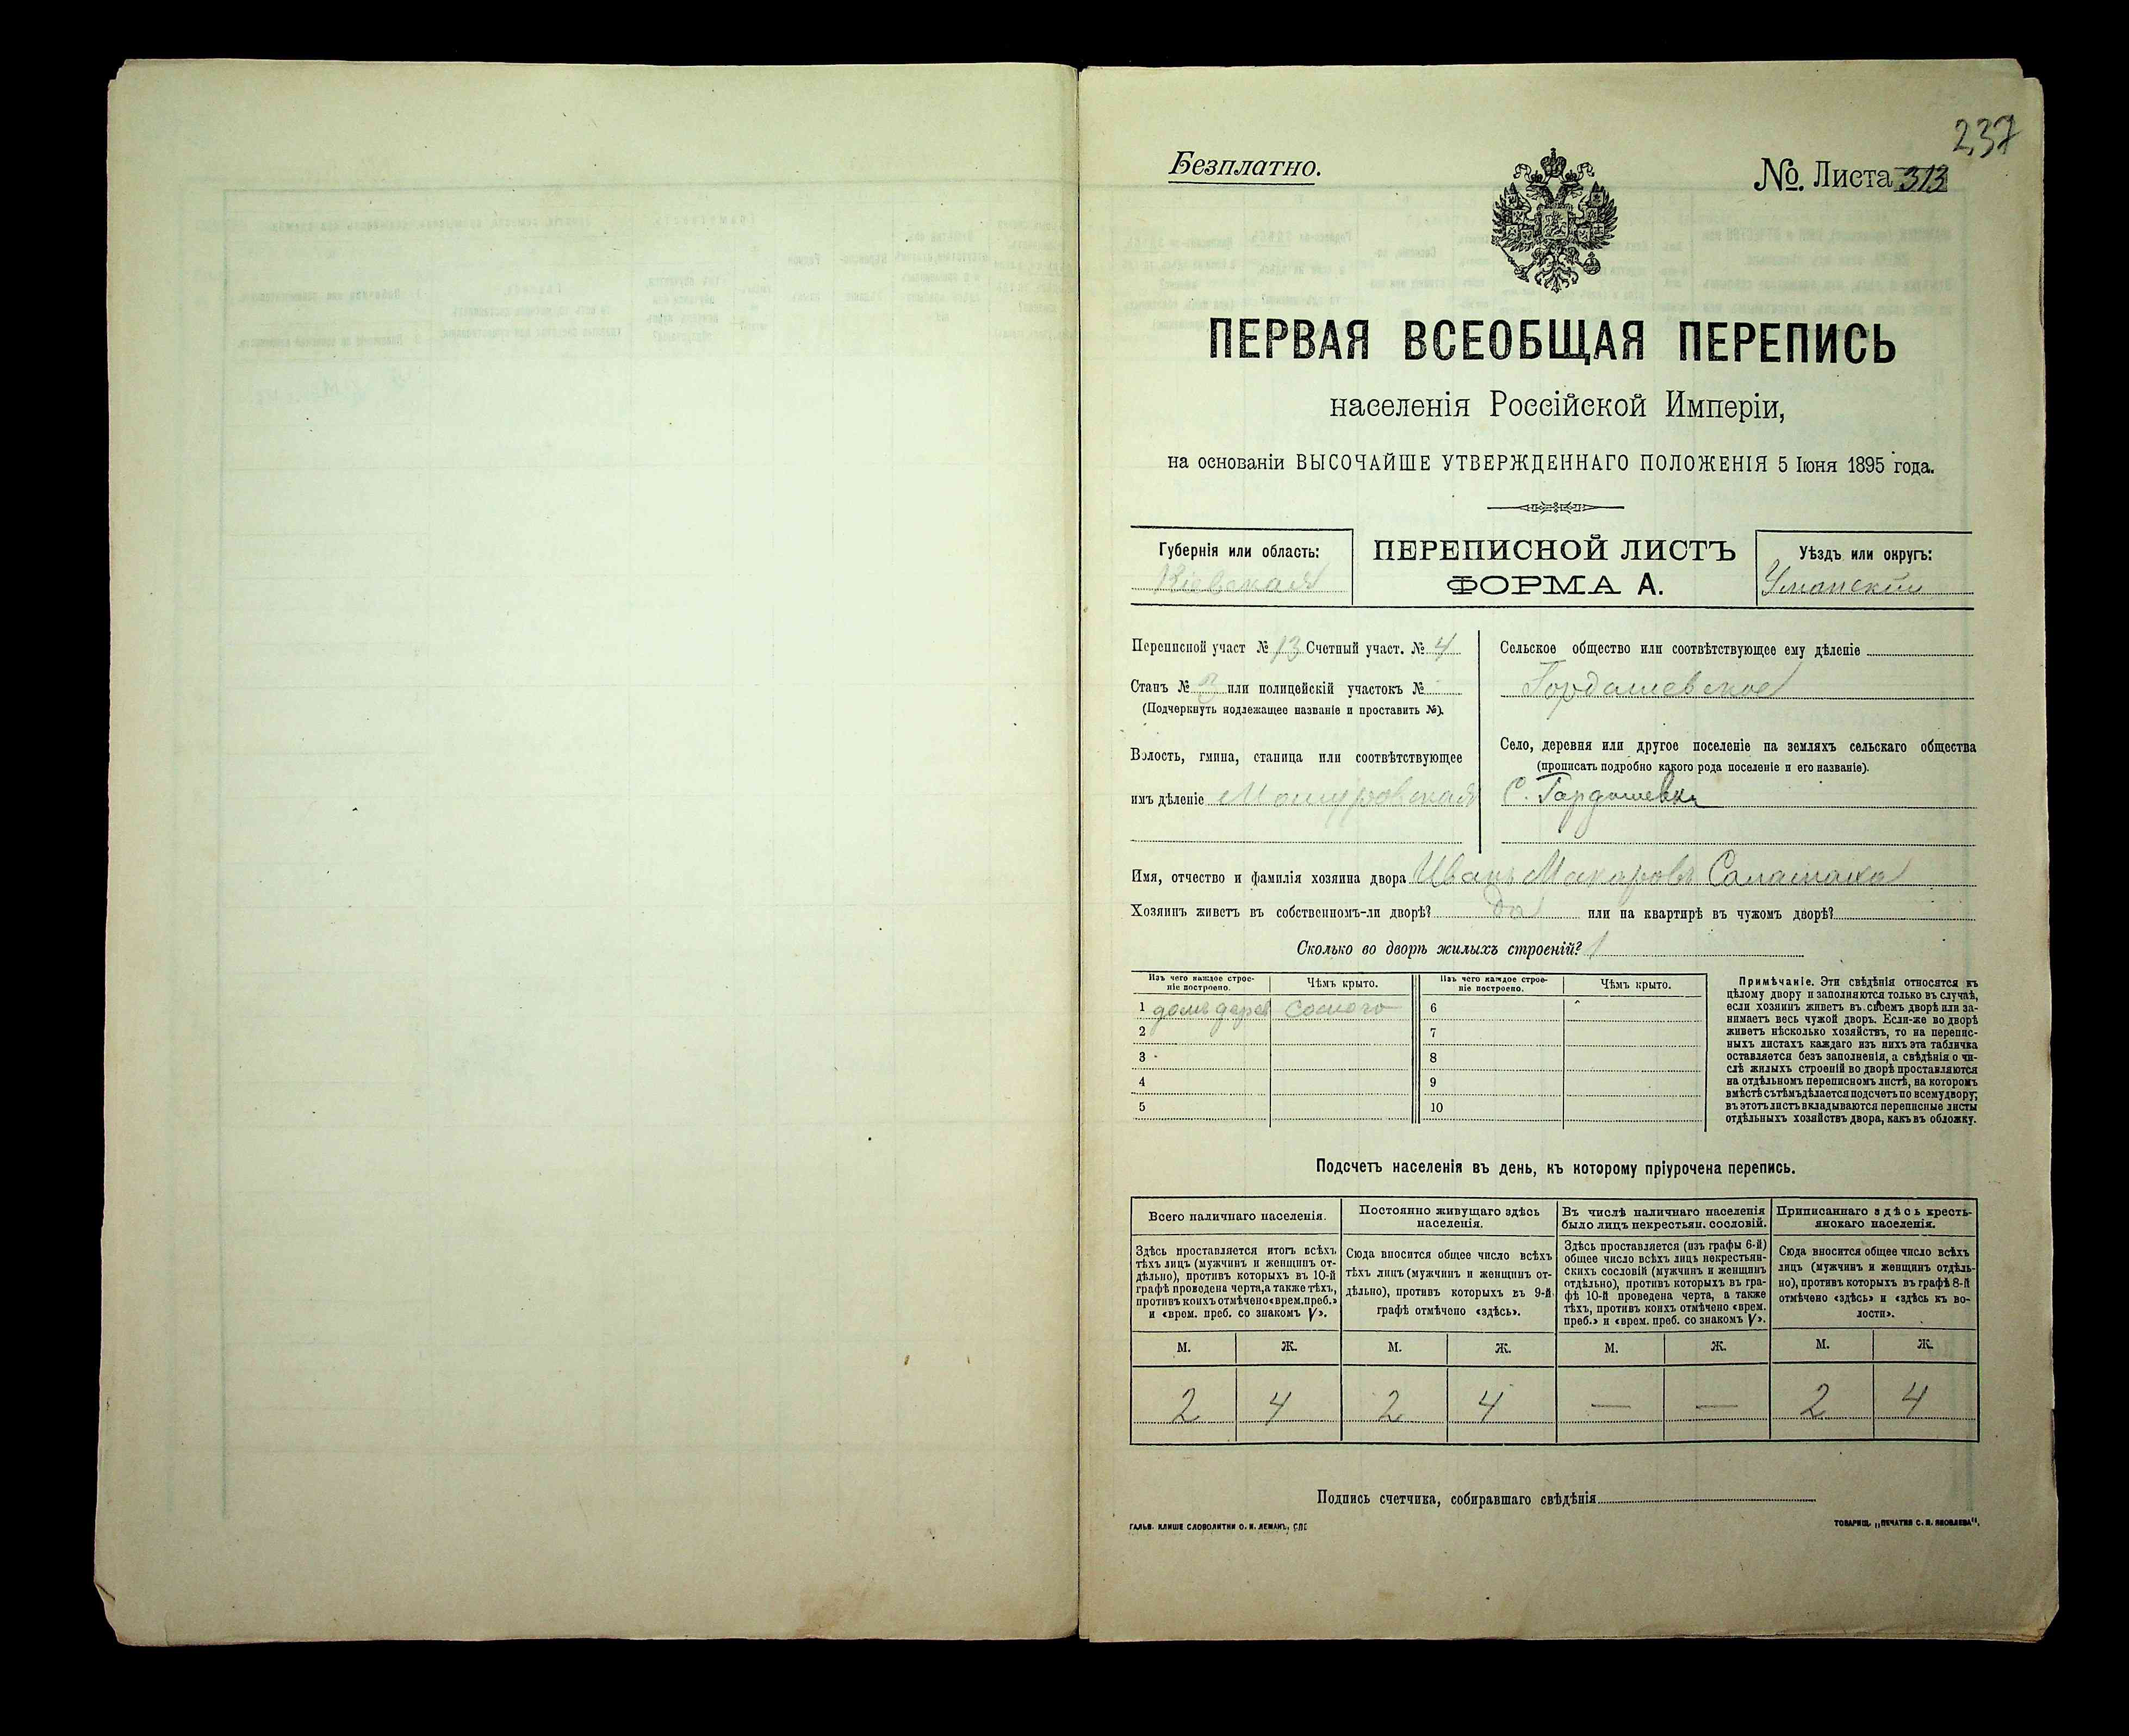 237
Безплатно.
№. Листа 313
ПЕРВАЯ ВСЕОБЩАЯ ПЕРЕПИСЬ
населенія Россійской Имперіи,
на основаніи ВЫСОЧАЙШЕ УТВЕРЖДЕННАГО ПОЛОЖЕНІЯ 5 Іюня 1895 года.
Губернія или область:
Кіевская
ПЕРЕПИСНОЙ ЛИСТЪ
ФОРМА А.
Уѣздъ или округъ:
Уманскій
Переписной участ № 13 Счетный участ. № 4
Станъ № или полицейскій участокъ №
(Подчеркнуть подлежащее названіе и проставить №).
Волость, гмина, станица или соотвѣтствующее
имъ дѣленіе Мошуровская
Сельское общество или соотвѣтствующее ему дѣленіе
Гордашевское
Село, деревня или другое поселеніе на земляхъ сельскаго общества
(прописать подробно какого рода поселеніе и его названіе).
С. Гордашевка
Имя, отчество и фамилія хозяина двора Иванъ Макаровъ
Хозяинъ живетъ въ собственномъ-ли дворѣ? да или на квартирѣ въ чужомъ дворѣ?
Сколько во дворѣ жилыхъ строеній? 1
Изъ чего каждое строе-
ніе построено.
Чѣмъ крыто.
Изъ чего каждое строе-
ніе построено.
Чѣмъ крыто.
1 домъ дерев соломо
2
3
4
5
6
7
8
9
10
Примѣчаніе. Эти свѣдѣнія относятся къ
цѣлому двору и заполняются только въ случаѣ,
если хозяинъ живетъ въ своемъ дворѣ или за-
нимаетъ весь чужой дворъ. Если-же во дворѣ
живетъ нѣсколько хозяйствъ, то на перепис-
ныхъ листахъ каждаго изъ нихъ эта табличка
оставляется безъ заполненія, а свѣдѣнія о чи-
слѣ жилыхъ строеній во дворѣ проставляются
на отдѣльномъ переписномъ листѣ, на которомъ
вмѣстѣ съ тѣмъ дѣлается подсчетъ по всему двору;
въ этотъ листъ вкладываются переписные листы
отдѣльныхъ хозяйствъ двора, какъ въ обложку.
Подсчетъ населенія въ день, къ которому пріурочена перепись.
Всего наличнаго населенія.
Здѣсь проставляется итогъ всѣхъ
тѣхъ лицъ (мужчинъ и женщинъ от-
дѣльно), противъ которыхъ въ 10-й
графѣ проведена черта, а также тѣхъ,
противъ коихъ отмѣчено «врем. преб.»
и «врем. преб. со знакомъ V».
Постоянно живущаго здѣсь
населенія.
Сюда вносится общее число всѣхъ
тѣхъ лицъ (мужчинъ и женщинъ от-
дѣльно), противъ которыхъ въ 9-й
графѣ отмѣчено «здѣсь».
Въ числѣ наличнаго населенія
было лицъ некрестьян. сословій.
Здѣсь проставляется (изъ графы 6-й)
общее число всѣхъ лицъ некрестьян-
скихъ сословій (мужчинъ и женщинъ
отдѣльно), противъ которыхъ въ гра-
фѣ 10-й проведена черта, а также
тѣхъ, противъ коихъ отмѣчено «врем.
преб.» и «врем. преб. со знакомъ V».
Приписаннаго здѣсь кресть-
янскаго населенія.
Сюда вносится общее число всѣхъ
лицъ (мужчинъ и женщинъ отдѣль-
но), противъ которыхъ въ графѣ 8-й
отмѣчено «здѣсь» и «здѣсь къ во-
лости».
М. Ж. М. Ж. М. Ж. М. Ж.
2 4 2 4 — — 2 4
Подпись счетчика, собиравшаго свѣдѣнія
ГАЛЬВ. КЛИШЕ СЛОВОЛИТНИ О. И. ЛЕМАНЪ, СПБ
ТОВАРИЩ. „ПЕЧАТНЯ С. П. ЯКОВЛЕВА".